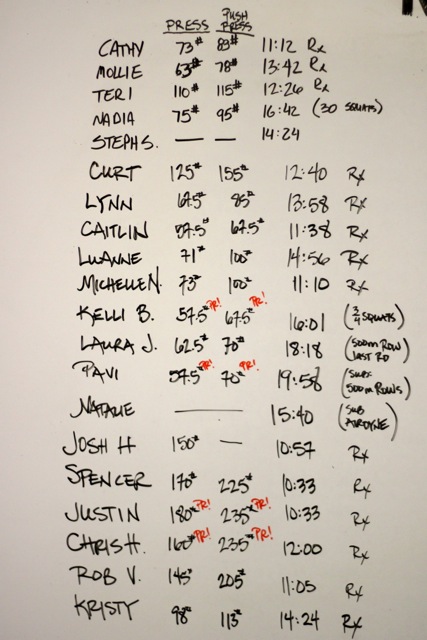 PRESS PUSH PRESS
CATHY 73# 83# 11:12 Rx
MOLLIE 63# 78# 13:42 Rx
TERI 110# 115# 12:26 Rx
NADIA 75# 95# 16:42 (30 SQUATS)
STEPH S. — — 14:24
CURT 125# 155# 12:40 Rx
LYNN 67.5# 85# 13:58 Rx
CAITLIN 57.5# 67.5# 11:38 Rx
LUANNE 71# 100# 14:56 Rx
MICHELLE N. 73# 100# 11:10 Rx
KELLI B. 57.5# PR! 67.5# PR! 16:01 (3/4 SQUATS)
LAURA J. 62.5# 70# 18:18 (500m ROW LAST RD)
PAVI 57.5# PR! 70# PR! 19:58 (SUB: 500m ROWS)
NATALIE — 15:40 (SUB AIRDYNE)
JOSH H 150# — 10:57 Rx
SPENCER 170# 225# 10:33 Rx
JUSTIN 180# PR! 235# PR! 10:33 Rx
CHRIS H. 160# PR! 235# PR! 12:00 Rx
ROB V. 145# 205# 11:05 Rx
KRISTY 98# 113# 14:24 Rx